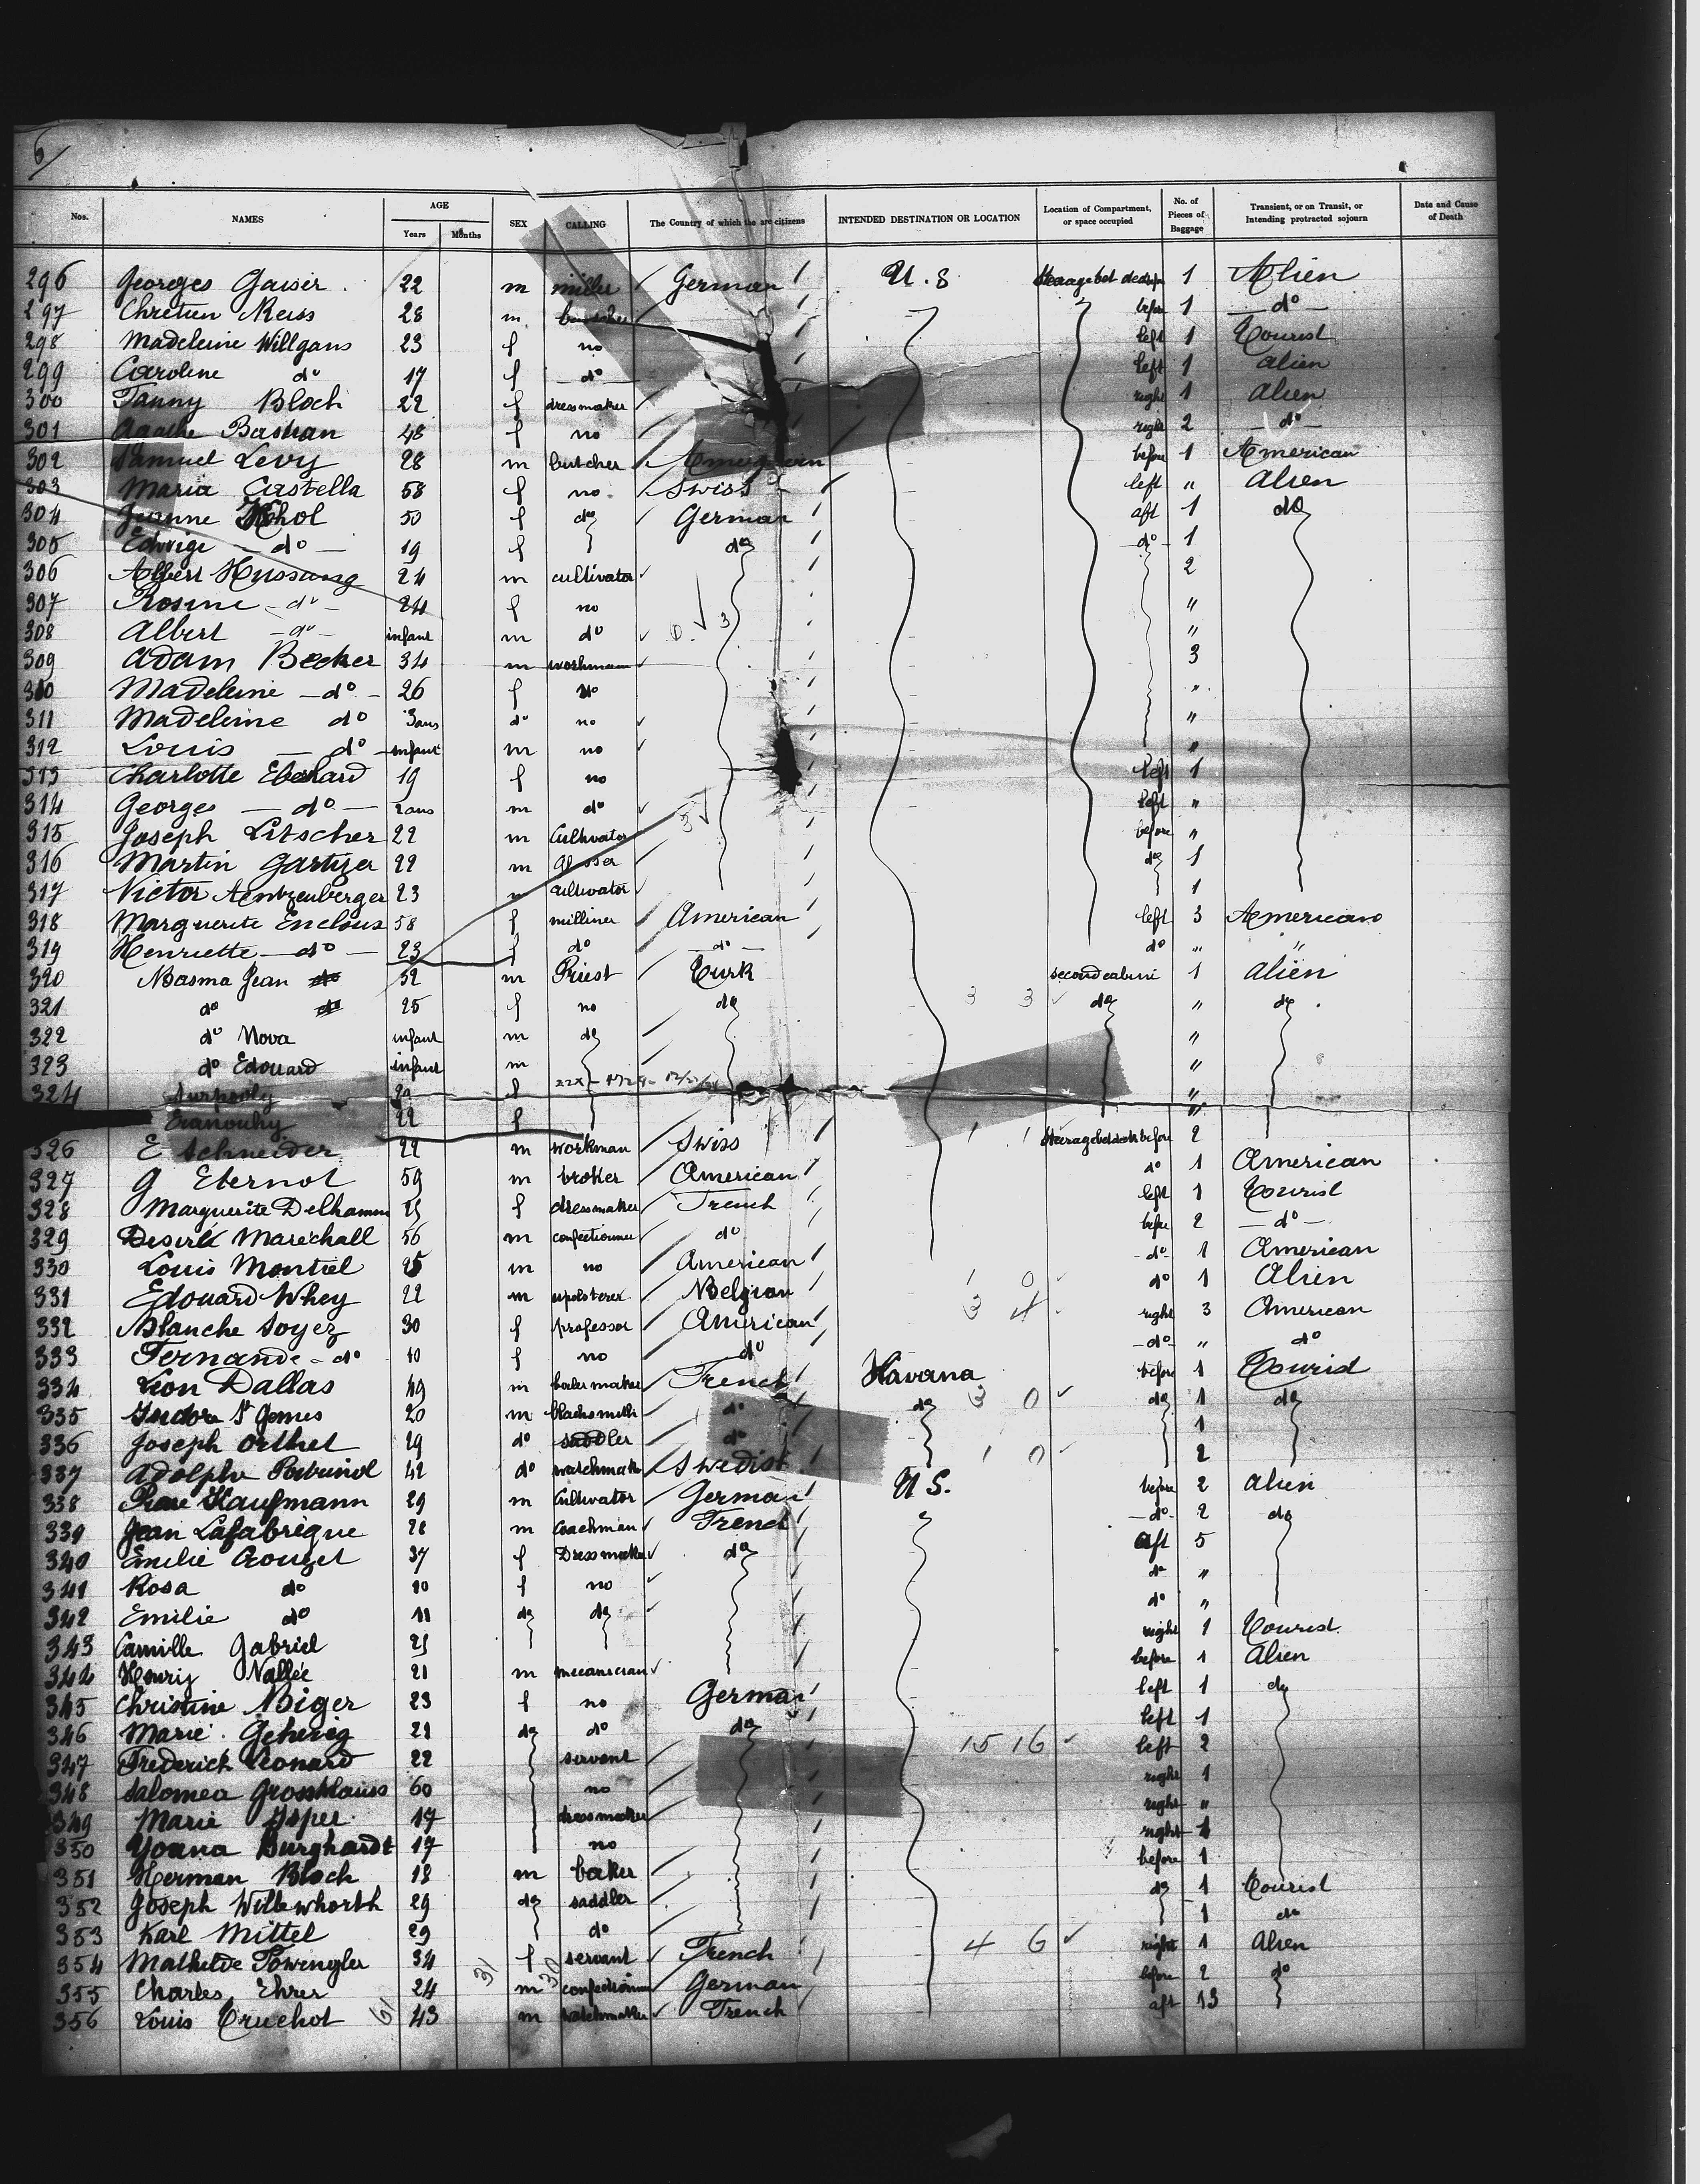 6/
Nos. NAMES AGE Years Months SEX CALLING The Country of which the are citizens INTENDED DESTINATION OR LOCATION Location of Compartment, or space occupied No. of Pieces of Baggage Transient, or on Transit, or Intending protracted sojourn Date and Cause of Death
296 Georges Gaiser 22 m miller German U.S 1 Alien
297 Chretien Reiss 28 m before 1 do
298 Madeleine Willgans 23 f no left 1 Tourist
299 Caroline do 17 f do left 1 alien
300 Fanny Bloch 22 f dressmaker right 1 Alien
301 Agathe Bastian 48 f no right 2 do
302 Samuel Levy 28 m butcher American before 1 American
303 Maria Castella 58 f no Swiss left " Alien
304 Jeanne Kohol 50 f do German aft 1 do
305 Edwige do 19 f do do 1
306 Albert Hussung 24 m cultivator 2
307 Rosine do 24 f no "
308 Albert do infant m do "
309 Adam Becker 34 m workman 3
310 Madeleine do 26 f no "
311 Madeleine do 3ans do no "
312 Louis do infant m no "
313 Charlotte Eberhard 19 f no left 1
314 Georges do 2ans m do left "
315 Joseph Litscher 22 m Cultivator before "
316 Martin 22 m do 1
317 Victor 23 m cultivator 1
318 Marguerite Enclous 58 f milliner American left 3 American
319 Henriette do 23 f do do do "
320 Basma Jean do 52 m Priest Turk second cabine 1 alien
321 do do 25 f no do 3 3 do " do
322 do Nova infant m do "
323 do Edouard infant m "
324 f "
22 f "
326 E Schneider 22 m workman Swiss 1 1 before 2
327 G Ebernot 59 m broker American do 1 American
328 Marguerite Delhamm f dressmaker French left 1 Tourist
329 Desiré Marechall 56 m confectionner do before 2 do
330 Louis Montiel 25 m no American do 1 American
331 Edouard Whey 22 m upolsterer Belgian 1 0 do 1 Alien
332 Blanche Soyez 30 f professor American 3 4 right 3 American
333 Fernande do 10 f no do do " do
334 Leon Dallas 49 m French Havana before 1 Tourist
335 Isidore St James 20 m blacksmith do do 3 0 do 1 do
336 Joseph Orthet 29 do saddler do 1
337 Adolphe 42 do watchmaker Swedish 1 0 2
338 Kaufmann 29 m Cultivator German U S. before 2 alien
339 Jean Lafabrégue 28 m Coachman French do 2 do
340 Emilie Crouzet 37 f Dressmaker do aft 5
341 Rosa do 10 f no do "
342 Emilie do 11 do do do "
343 Camille Gabriel right 1 Tourist
344 Henry Vallée 21 m mecanician before 1 Alien
345 Christine Biger 23 f no German left 1 do
346 Marie Gehrig 21 do do do left 1
347 Frederick Leonard 22 servant 15 16 left 2
348 Salomea Grossklauss 60 no right 1
349 Marie 17 dressmaker right "
350 Yoana Burghardt 17 no right 1
351 Herman Bloch 18 m baker before 1
352 Joseph 29 do saddler do 1 Tourist
353 Karl Mittel 29 do 1 do
354 Mathilde 34 f servant French 4 6 right 1 Alien
355 Charles Ehrer 24 31 m 30 confectionner German before 2 do
356 Louis Cruchot 61 43 m watchmaker French aft 13